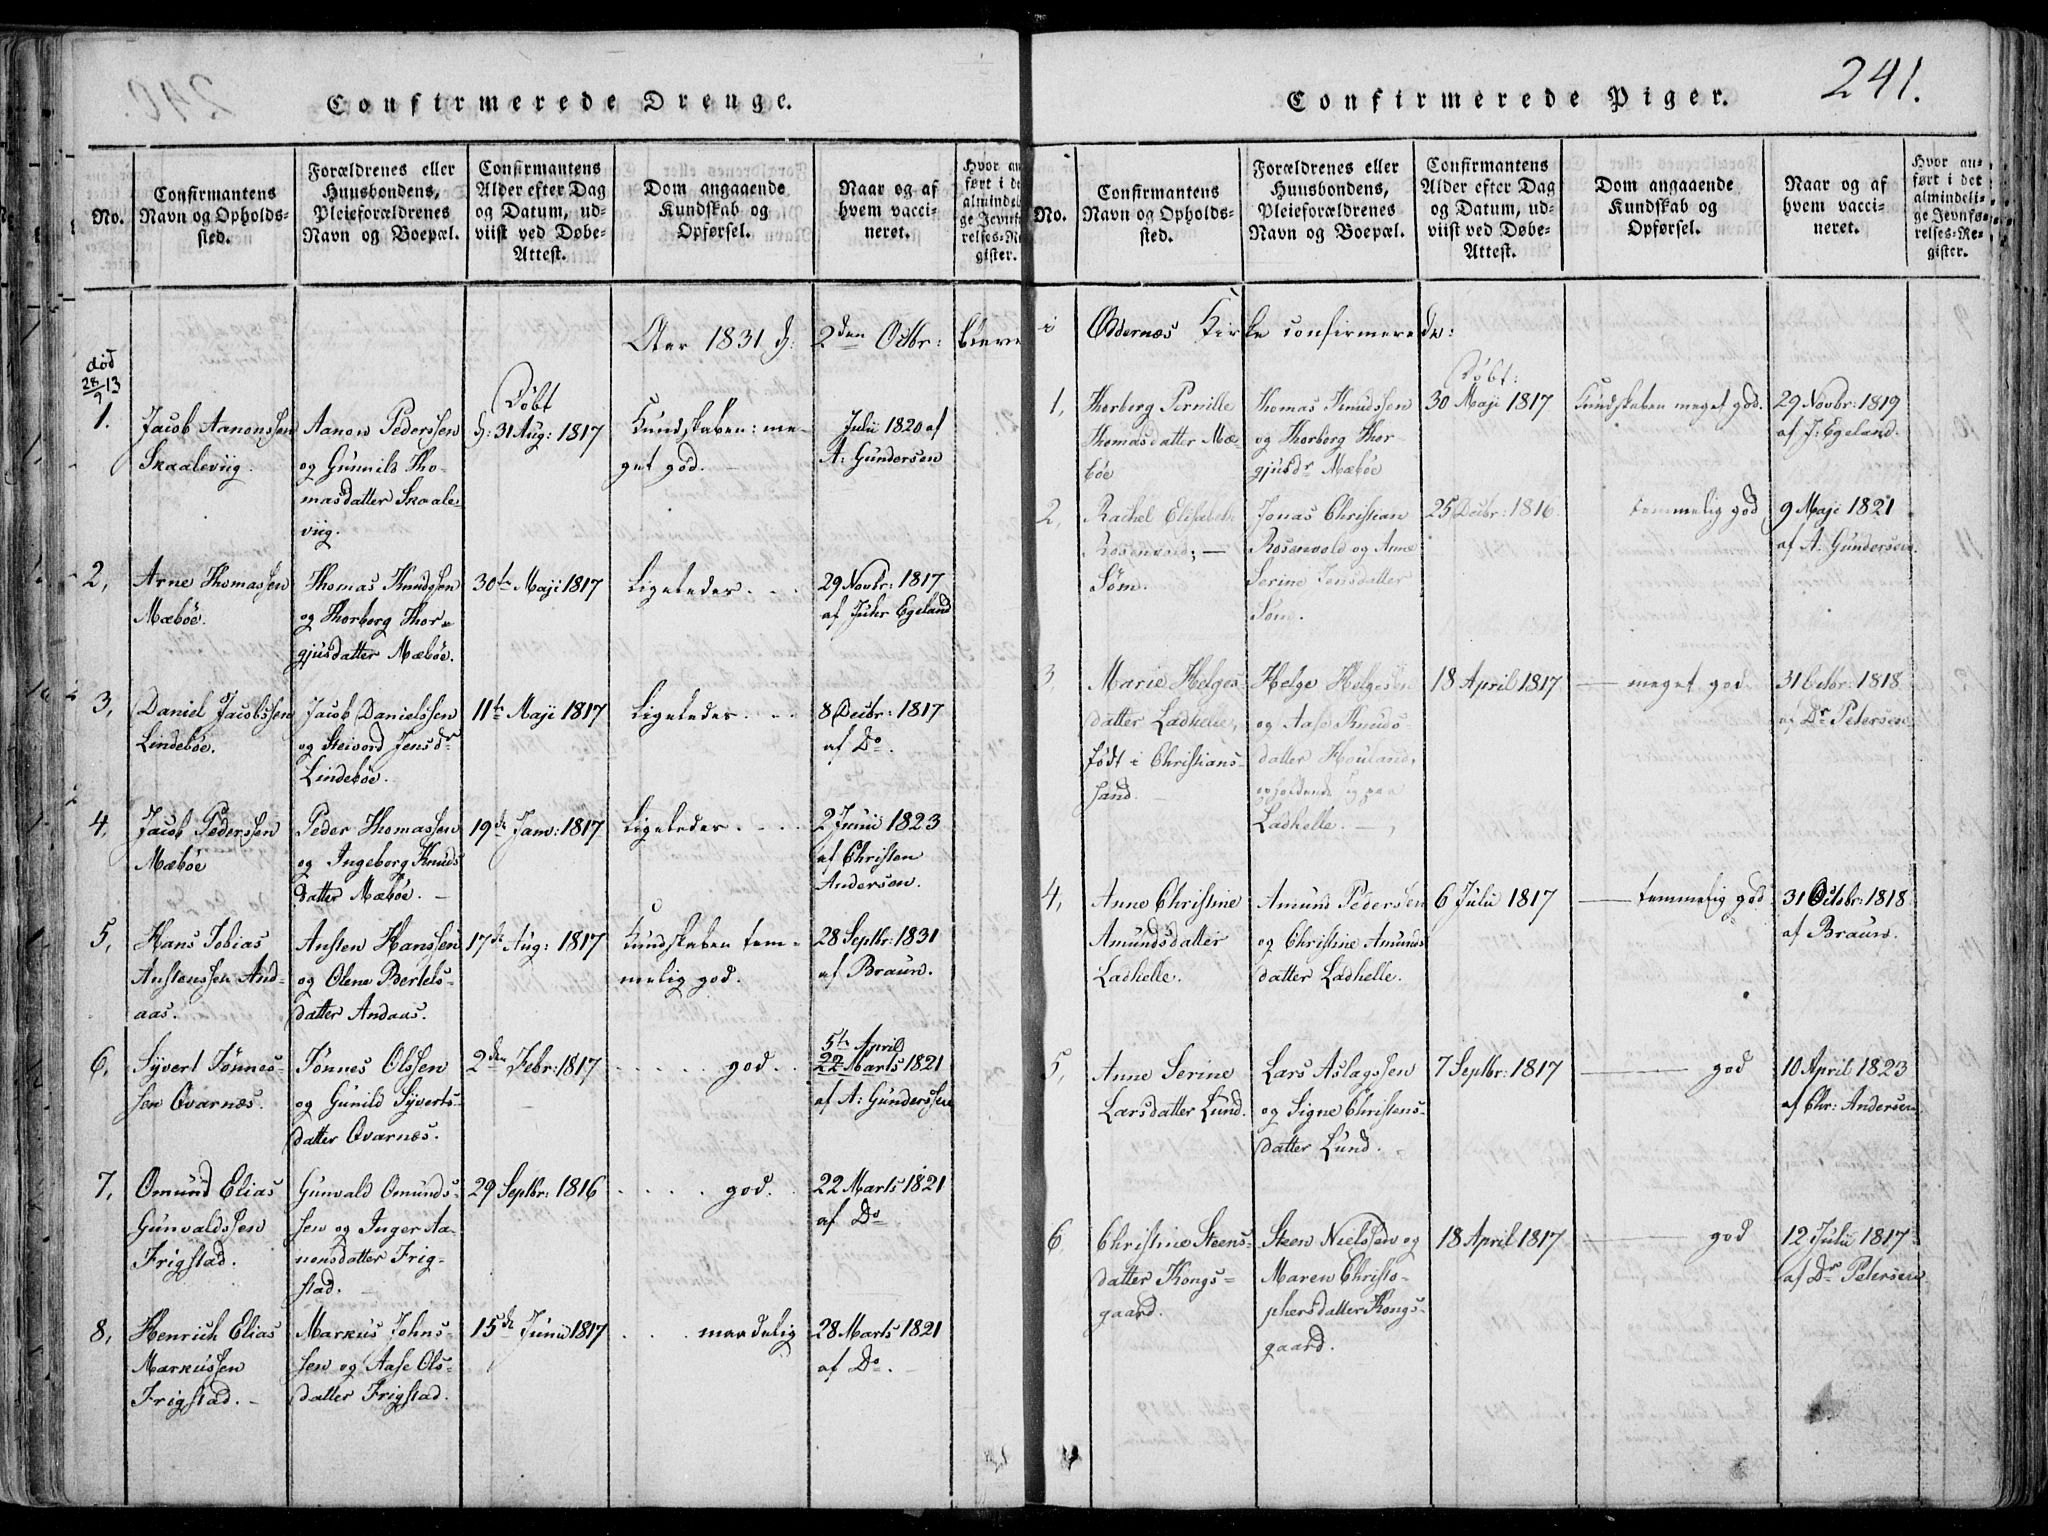 Confirmerede Drenge.
No.
Confirmantens
Navn og Opholds-
sted.
Forældrenes eller
Huusbondens,
Pleieforældrenes
Navn og Boepæl.
Confirmantens
Alder efter Dag
og Datum, ud-
viist ved Døbe-
Attest.
Dom angaaende
Kundskab og
Opførsel.
Naar og af
hvem vacci-
neret.
Hvor an
ført i de
almindel
ge Jevnfø
relses-Re
gister.
Aar 1831 d: 2den Octbr: bleve
død
28/9 13
1.
Jacob Aanonssen
Skaaleviig.
Aanon Pederssen
og Gunnild Tho-
masdatter Skaale-
viig.
Døbt
d: 31 Aug: 1817
Kundskaben: me-
get god.
Julii 1820 af
A: Gundersen
2,
Arne Thomassen
Mæbøe.
Thomas Knudssen
og Thorborg Thor-
gjusdatter Mæbøe.
30te Maji 1817
Ligeledes
29 Novbr: 1817
af Juhr Egeland
3,
Daniel Jacobssen
Lindebøe.
Jacob Danielssen
og Steivord Jensdr
Lindebøe.
11te Maji 1817
Ligeledes
8 Decbr: 1817
af Do.
4,
Jacob Pederssen
Mæbøe
Peder Thomassen
og Ingeborg Knuds
datter Mæbøe.
19de Janv: 1817
Ligeledes
2 Junii 1823
af Christen
Andersen.
5,
Hans Tobias
Anstenssen And-
aas.
Ansten Hanssen
og Olene Bertels-
datter Andaas.
17de Aug: 1817
Kundskaben tem-
melig god.
28 Septbr: 1831
af Braun.
6,
Syvert Tønnes-
sen Qvarnæs.
Tønnes Olssen
og Gunild Syverts-
datter Qvarnæs.
2den Febr: 1817
god.
5te April
22 Marts 1821
af A: Gunderssen
7,
Omund Elias
Gunvaldssen
Frigstad.
Gunvald Omunds-
sen og Inger Aa-
nensdatter Frig-
stad.
29 Septbr: 1816
god.
22 Marts 1821
af Do
8,
Henrich Elias
Markussen
Frigstad.
Markus Johns-
sen og Aase Ols-
datter Frigstad.
15de Junii 1817
maadelig
28 Marts 1821
af Do.
Confirmerede Piger.
241.
No.
Confirmantens
Navn og Opholds-
sted.
Forældrenes eller
Huusbondens,
Pleieforældrenes
Navn og Boepæl.
Confirmantens
Alder efter Dag
og Datum, ud-
viist ved Døbe-
Attest.
Dom angaaende
Kundskab og
Opførsel.
Naar og af
hvem vacci-
neret.
Hvor an-
ført i det
almindeli-
ge Jevnfø-
relses-Re-
gister.
i Oddernæs Kirke confirmerede:
1,
Thorborg Pernille
Thomasdatter Mæ-
bøe
Thomas Knudssen
og Thorborg Thor-
gjusdr Mæbøe
Døbt:
30 Maji 1817
Kundskaben meget god.
29 Novbr: 1819
af J: Egeland.
2,
Rachel Elisabet
Rosenvold;
Søm.
Jonas Christian
Rosenvold og Anne
Serine Jensdatter
Søm.
25 Decbr: 1816
temmelig god
9 Maji 1821
af A: Gundersen.
3,
Marie Helges-
datter Ladhelle,
født i Christians-
sand.
Helge Helgesen
og Aase Knuds-
datter Houland,
opholdende sig paa
Ladhelle.
18 April 1817
meget god
31 Octbr: 1818
af Dr Petersen
4,
Anne Christine
Amundsdatter
Ladhelle.
Amund Pedersen
og Christine Amunds
datter Ladhelle.
6 Julii 1817
temmelig god
31 Octobr: 1818
af Braun.
5,
Anne Serine
Larsdatter Lund.
Lars Aslagssen
og Signe Christens-
datter Lund.
7 Septbr: 1817
god
10 April 1823
af Chr: Andersen
6
Christine Steens-
datter Kongs-
gaard.
Steen Nielssen og
Maren Christo-
phersdatter Kongs-
gaard.
18 April 1817
god
12 Julii 1817
af Dr Petersen